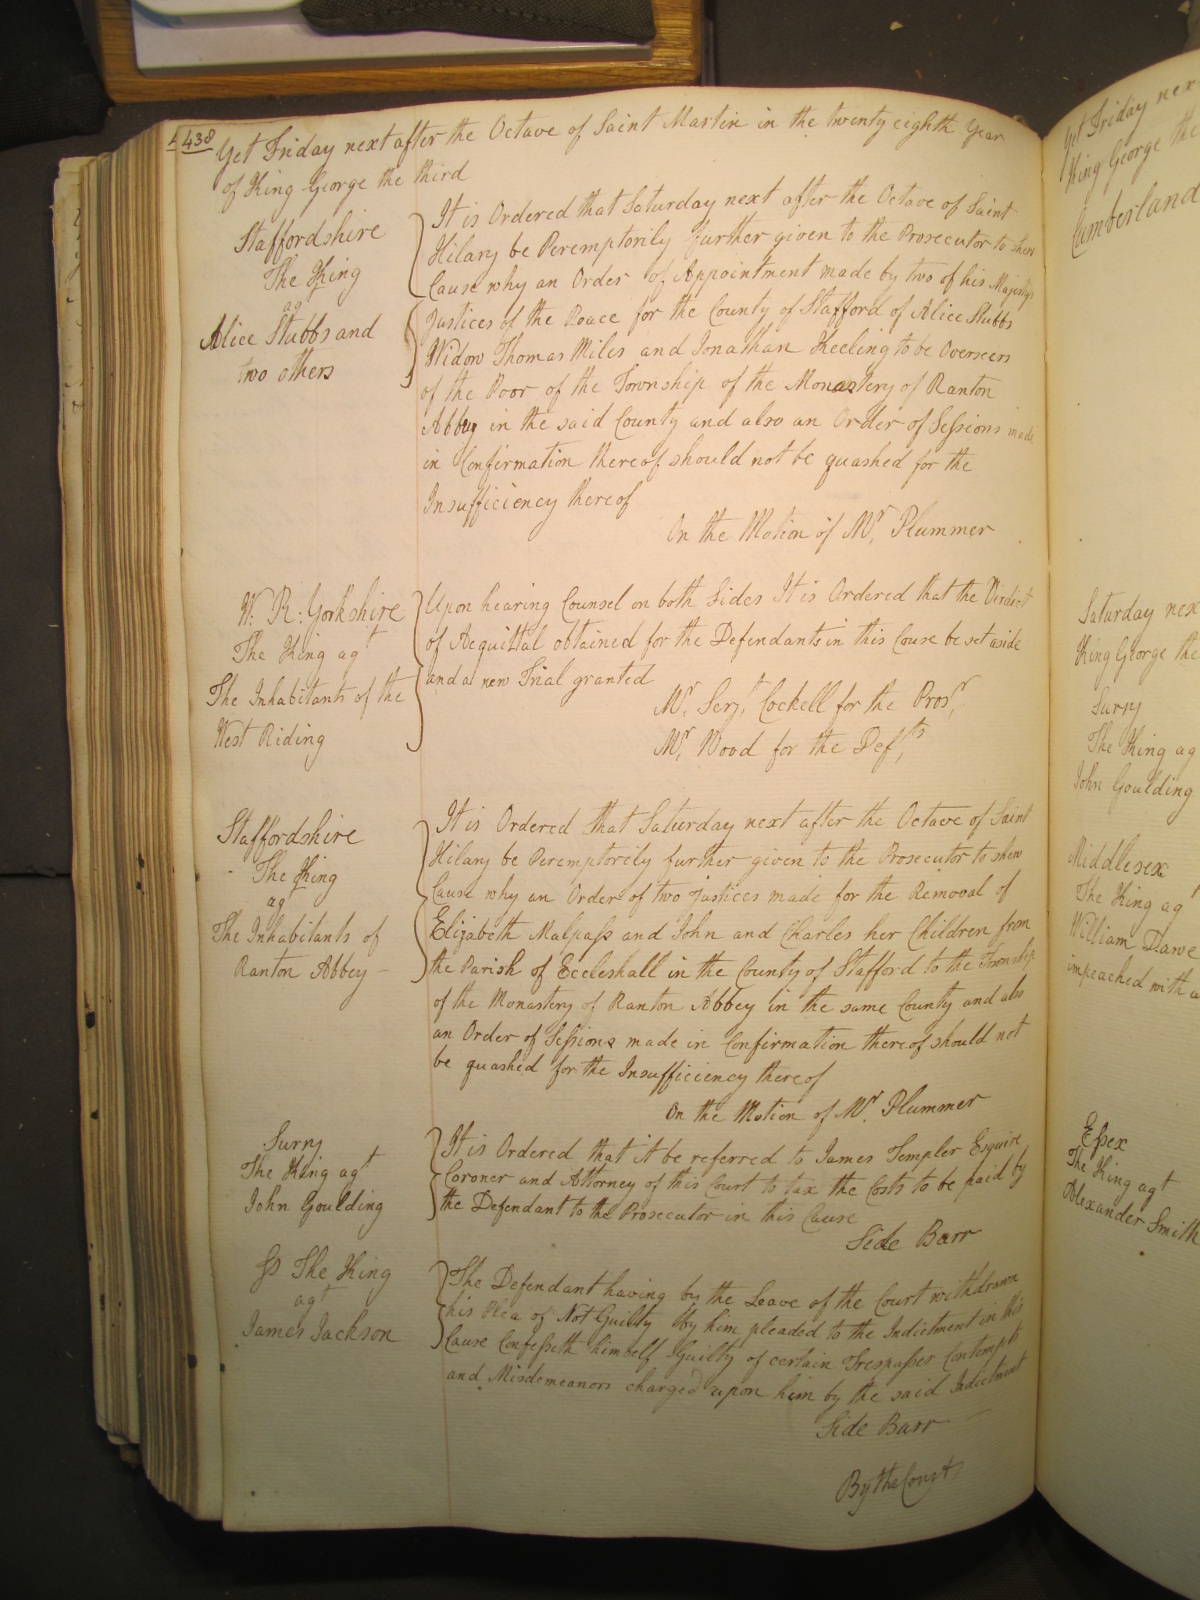 438
Yet Friday next after the Octave of Saint Martin in the twenty eighth Year
of King George the third
Staffordshire
The King
agt
Alice Stubbs and
two others
It is Ordered that Saturday next after the Octave of Saint
Hilary be Peremptorily further given to the Prosecutor to shew
Cause why an Order of Appointment made by two of his Majestys
Justices of the Peace for the County of Stafford of Alice Stubbs
Widow Thomas Miles and Jonathan Keeling to be Overseers
of the Poor of the Township of the Monastery of Ranton
Abbey in the said County and also an Order of Sessions made
in Confirmation thereof should not be quashed for the
Insufficiency thereof
On the Motion of Mr. Plummer
W. R: Yorkshire
The King agt
The Inhabitants of the
West Riding
Upon hearing Counsel on both Sides It is Ordered that the Verdict
of Acquittal obtained for the Defendants in this Cause be set aside
and a new Trial granted
Mr. Serjt. Cockell for the Prosr.
Mr. Wood for the Defts.
Staffordshire
The King
agt
The Inhabitants of
Ranton Abbey
It is Ordered that Saturday next after the Octave of Saint
Hilary be Peremptorily further given to the Prosecutor to shew
Cause why an Order of two Justices made for the Removal of
Elizabeth Malpass and John and Charles her Children from
the Parish of Eccleshall in the County of Stafford to the Township
of the Monastery of Ranton Abbey in the same County and also
an Order of Sessions made in Confirmation thereof should not
be quashed for the Insufficiency thereof
On the Motion of Mr. Plummer
Surry
The King agt
John Goulding
It is Ordered that it be referred to James Templer Esquire
Coroner and Attorney of this Court to tax the Costs to be paid by
the Defendant to the Prosecutor in this Cause
Side Barr
Ss The King
agt
James Jackson
The Defendant having by the Leave of the Court withdrawn
his Plea of Not Guilty by him pleaded to the Indictment in this
Cause Confesseth himself Guilty of certain Trespasses Contempts
and Misdemeanors charged upon him by the said Indictment
Side Barr
By the Court
Yet Friday nex
King George the
Cumberland
Saturday nex
King George the
Surry
The King ag
John Goulding
Middlesex
The King agt
William Dawe
impeached with
Essex
The King agt
Alexander Smith